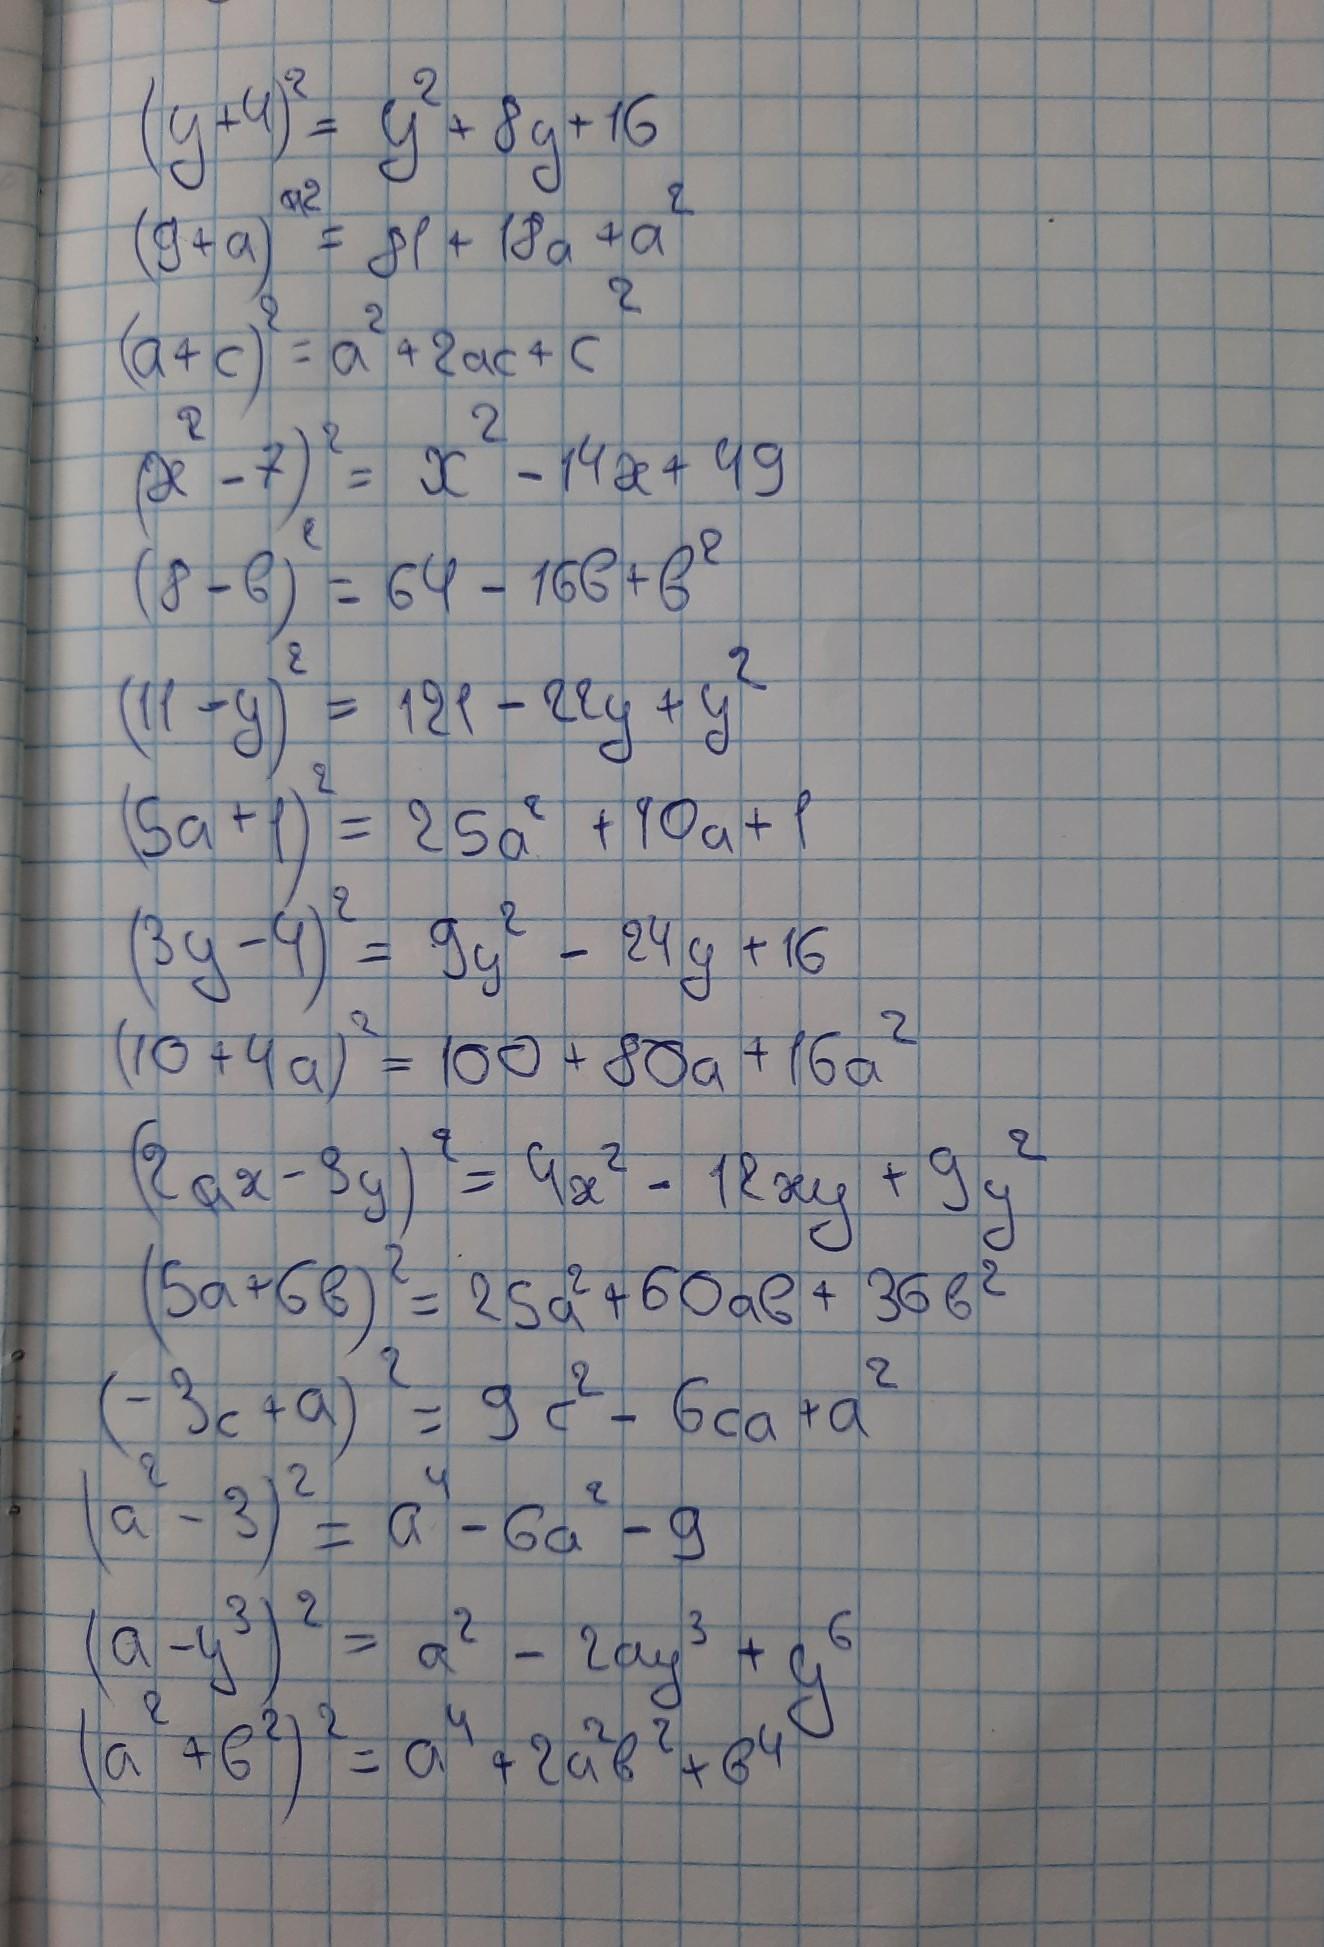 (y+4)² = y² + 8y + 16
(9+a)² = 81 + 18a + a²
(a+c)² = a² + 2ac + c²
(x² - 7)² = x² - 14x + 49
(8 - в)² = 64 - 16в + в²
(11 - y)² = 121 - 22y + y²
(5a + 1)² = 25a² + 10a + 1
(3y - 4)² = 9y² - 24y + 16
(10 + 4a)² = 100 + 80a + 16a²
(2ax - 3y)² = 4x² - 12xy + 9y²
(5a + 6в)² = 25a² + 60aв + 36в²
(-3c + a)² = 9c² - 6ca + a²
(a² - 3)² = a⁴ - 6a² - 9
(a - y³)² = a² - 2ay³ + y⁶
(a² + в²)² = a⁴ + 2a²в² + в⁴